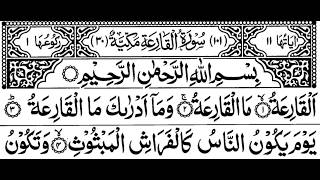 اٰیَاتُهَا ۱۱ (۱۰۱) سُوْرَةُ الْقَارِعَةِ مَكِّيَّةٌ (۳۰) رُكُوْعُهَا ۱
بِسْمِ اللّٰهِ الرَّحْمٰنِ الرَّحِيْمِ
اَلْقَارِعَةُ ۙ۱ مَا الْقَارِعَةُ ۚ۲ وَمَاۤ اَدْرٰىكَ مَا الْقَارِعَةُ ؕ
يَوْمَ يَكُوْنُ النَّاسُ كَالْفَرَاشِ الْمَبْثُوْثِ ۙ وَتَكُوْنُ